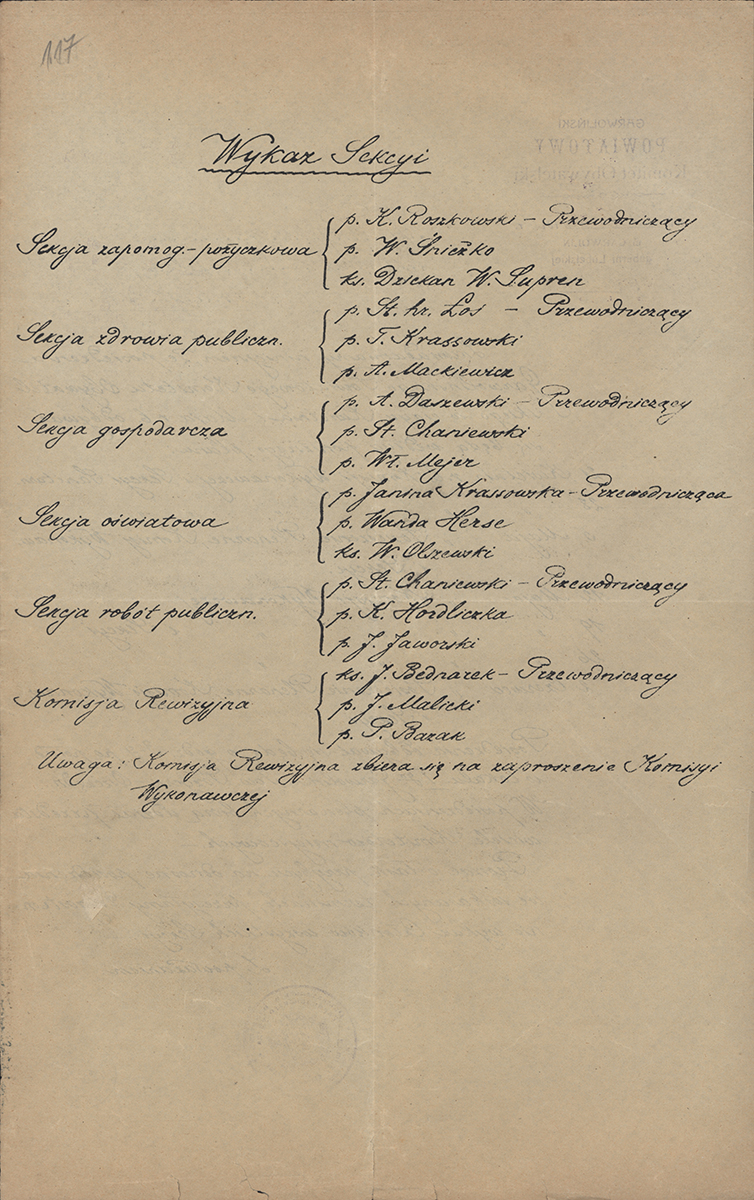 117
GARWOLIŃSKI
POWIATOWY
Komitet Obywatelski
Wykaz Sekcyi
Sekcja zapomog.-pożyczkowa
p. K. Roszkowski – Przewodniczący
p. W. Śnieżko
ks. Dziekan W. Supren
Sekcja zdrowia publiczn.
p. St. hr. Łoś – Przewodniczący
p. T. Krassowski
p. A. Mackiewicz
Sekcja gospodarcza
p. A. Daszewski – Przewodniczący
p. St. Chaniewski
p. Wł. Mejer
Sekcja oświatowa
p. Janina Krassowska – Przewodnicząca
p. Wanda Herse
ks. W. Olszewski
Sekcja robót publiczn.
p. St. Chaniewski – Przewodniczący
p. K. Hordliczka
p. J. Jaworski
Komisja Rewizyjna
ks. J. Bednarek – Przewodniczący
p. J. Malicki
p. P. Bazak
Uwaga: Komisja Rewizyjna zbiera się na zaproszenie Komisyi
Wykonawczej